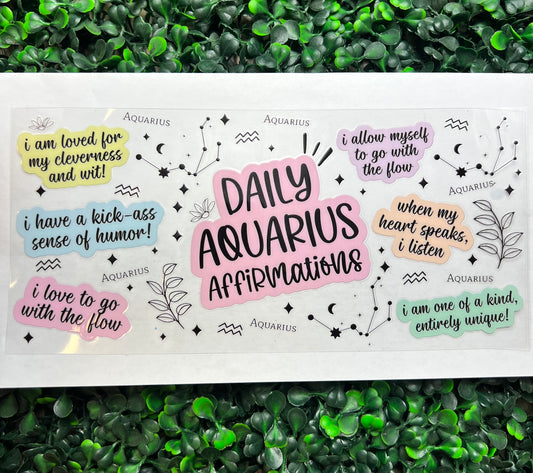 AQUARIUS
AQUARIUS
i am loved for
my cleverness
and wit!
i allow myself
to go with
the flow
AQUARIUS
DAILY
AQUARIUS
AFFIRMATIONS
i have a kick-ass
sense of humor!
when my
heart speaks,
i listen
AQUARIUS
AQUARIUS
i love to go
with the flow
AQUARIUS
i am one of a kind,
entirely unique!